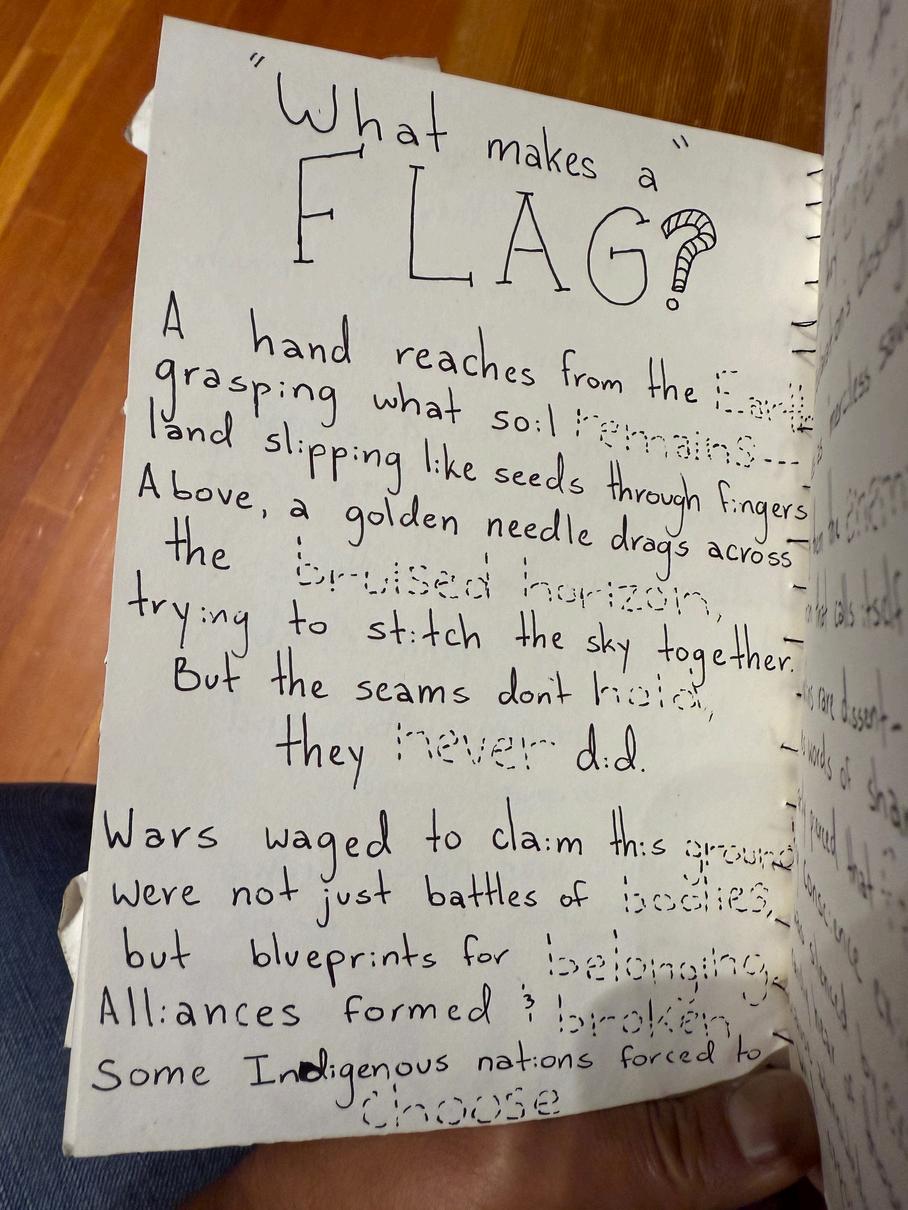 "What makes a"
FLAG?
A hand reaches from the Earth
grasping what soil remains---
land slipping like seeds through fingers
Above, a golden needle drags across
the bruised horizon,
trying to stitch the sky together.
But the seams don't hold,
they never did.
Wars waged to claim this ground
were not just battles of bodies,
but blueprints for belonging.
Alliances formed & broken
Some Indigenous nations forced to
choose
calls itself
rare dissent-
words of